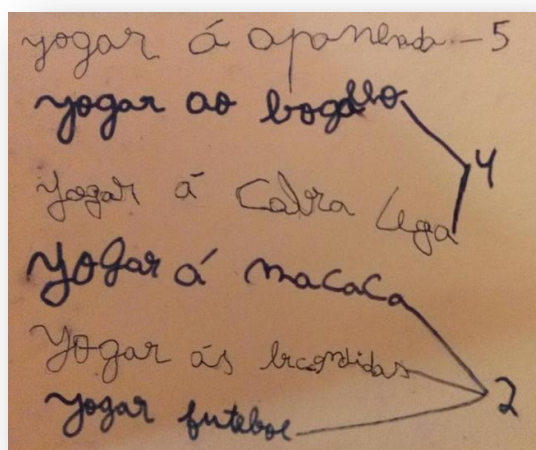 yogar á apanhada - 5
yogar ao bogalho
yogar á Cabra Cega
4
yogar á macaca
yogar ás escondidas
yogar futebol
2